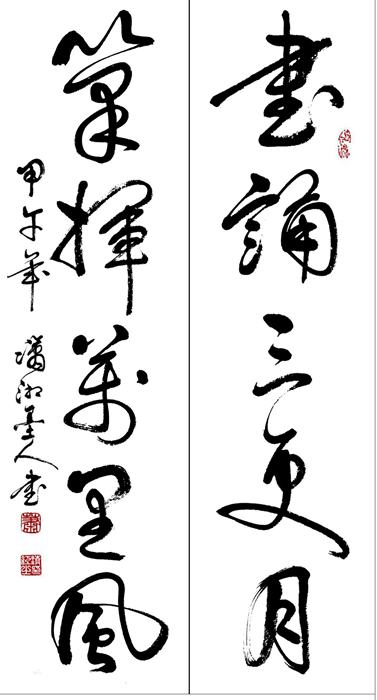 書誦三更月
筆揮萬里風
甲午年 瀟湘墨人書